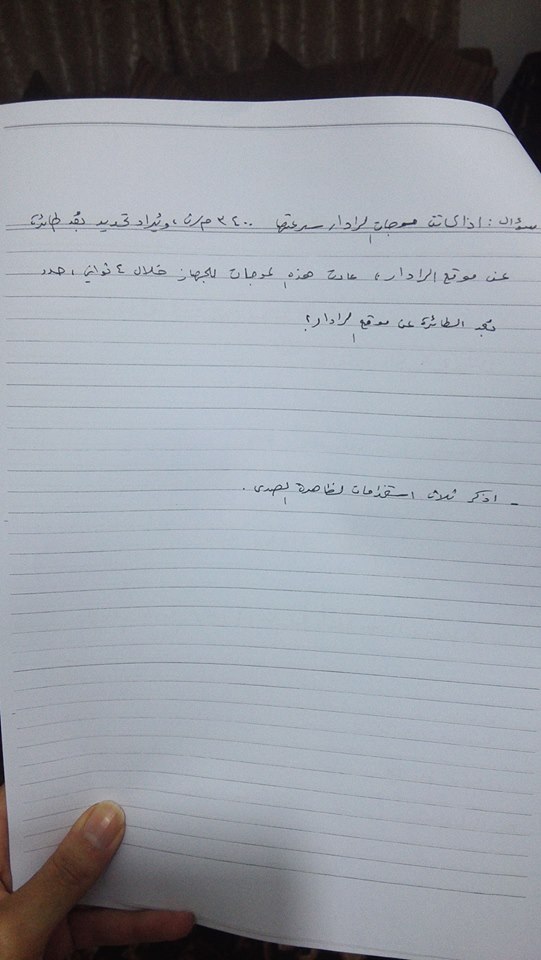 سؤال : اذا كانت موجات الرادار سرعتها ٣٤٠٠ م/ث ، ويُراد تحديد بُعد طائرة
عن موقع الرادار ، عادت هذه الموجات للجهاز خلال ٤ ثواني ، حدد
بُعد الطائرة عن موقع الرادار ؟
- اذكر ثلاث استخدامات لظاهرة الصدى .